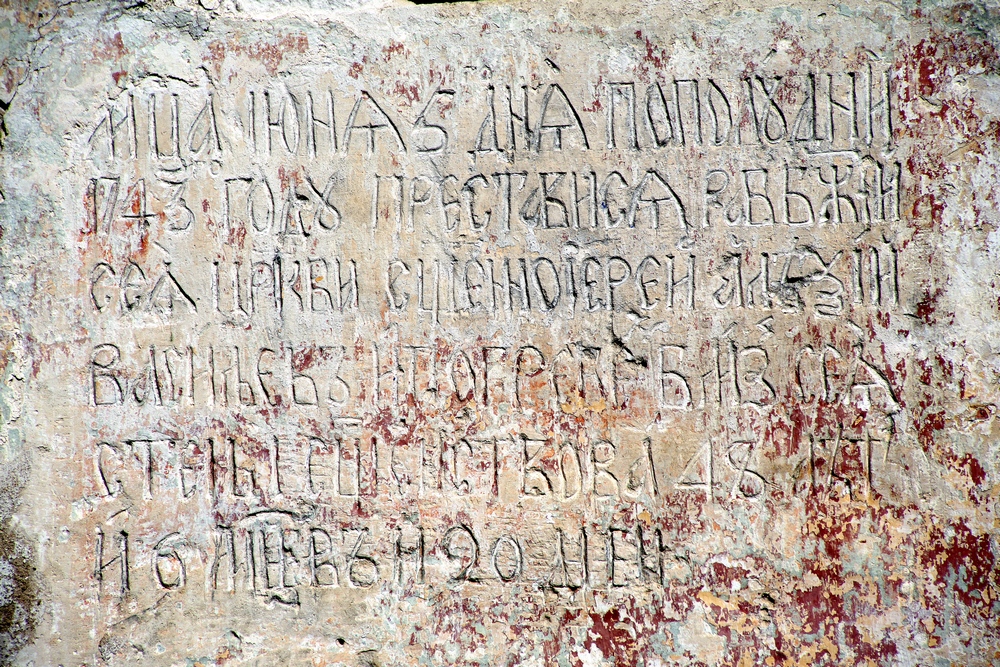 МЦА ІЮНѦ 5 ДНѦ ПОПОЛꙊДНИ
1743 ГОДꙊ ПРЕСТАВИСѦ РАБЪ БЖІЙ
СЕѦ ЦРКВИ СЩЕННОІЕРЕЙ
ВАСИЛЬЕВЪ И ПОГРЕБЕ БЛИЗ СЕѦ
СТЕНЫ СЩЕНСТВОВА 48 ЛѢТ
И 6 МЦЕВЪ И 20 ДНЕИ